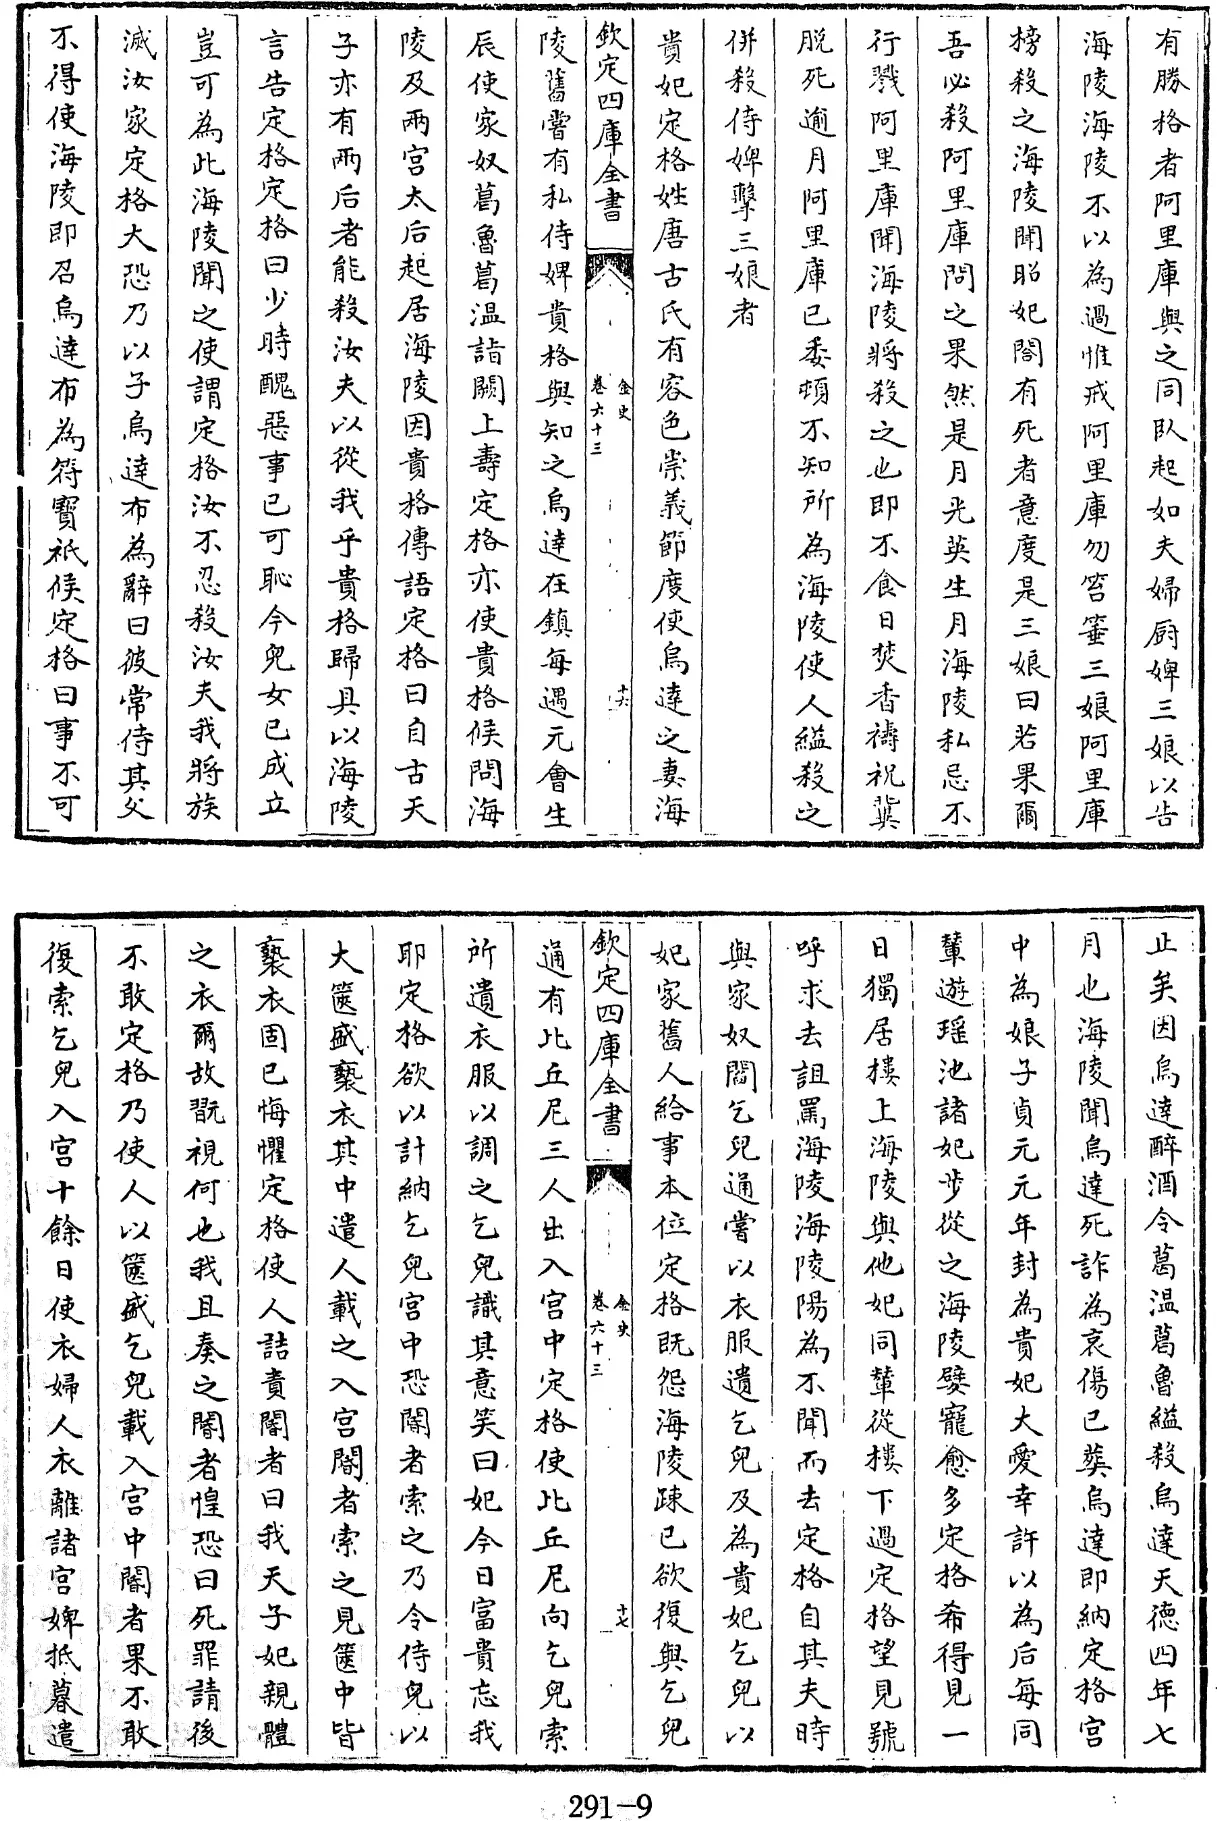 有勝格者阿里庫與之同臥起如夫婦廚婢三娘以告
海陵海陵不以為過惟戒阿里庫勿笞箠三娘阿里庫
榜殺之海陵聞昭妃閤有死者意度是三娘曰若果爾
吾必殺阿里庫問之果然是月光英生月海陵私忌不
行戮阿里庫聞海陵將殺之也即不食日焚香禱祝冀
脫死逾月阿里庫已委頓不知所為海陵使人縊殺之
併殺侍婢擊三娘者
貴妃定格姓唐古氏有容色崇義節度使烏達之妻海
欽定四庫全書
金史
卷六十三
十六
陵舊嘗有私侍婢貴格與知之烏達在鎮每遇元會生
辰使家奴葛魯葛温詣闕上壽定格亦使貴格候問海
陵及兩宮太后起居海陵因貴格傳語定格曰自古天
子亦有兩后者能殺汝夫以從我乎貴格歸具以海陵
言告定格定格曰少時醜惡事已可恥今兒女已成立
豈可為此海陵聞之使謂定格汝不忍殺汝夫我將族
滅汝家定格大恐乃以子烏達布為辭曰彼常侍其父
不得使海陵即召烏達布為符寶祗候定格曰事不可
止矣因烏達醉酒令葛温葛魯縊殺烏達天德四年七
月也海陵聞烏達死詐為哀傷已葬烏達即納定格宮
中為娘子貞元元年封為貴妃大愛幸許以為后每同
輦遊瑤池諸妃步從之海陵嬖寵愈多定格希得見一
日獨居樓上海陵與他妃同輦從樓下過定格望見號
呼求去詛罵海陵海陵陽為不聞而去定格自其夫時
與家奴閻乞兒通嘗以衣服遺乞兒及為貴妃乞兒以
妃家舊人給事本位定格既怨海陵疎已欲復與乞兒
欽定四庫全書
金史
卷六十三
十七
通有比丘尼三人出入宮中定格使比丘尼向乞兒索
所遺衣服以調之乞兒識其意笑曰妃今日富貴忘我
耶定格欲以計納乞兒宮中恐閽者索之乃令侍兒以
大篋盛褻衣其中遣人載之入宮閽者索之見篋中皆
褻衣固已悔懼定格使人詰責閽者曰我天子妃親體
之衣爾故翫視何也我且奏之閽者惶恐曰死罪請後
不敢定格乃使人以篋盛乞兒載入宮中閽者果不敢
復索乞兒入宮十餘日使衣婦人衣雜諸宮婢抵暮遣
291-9